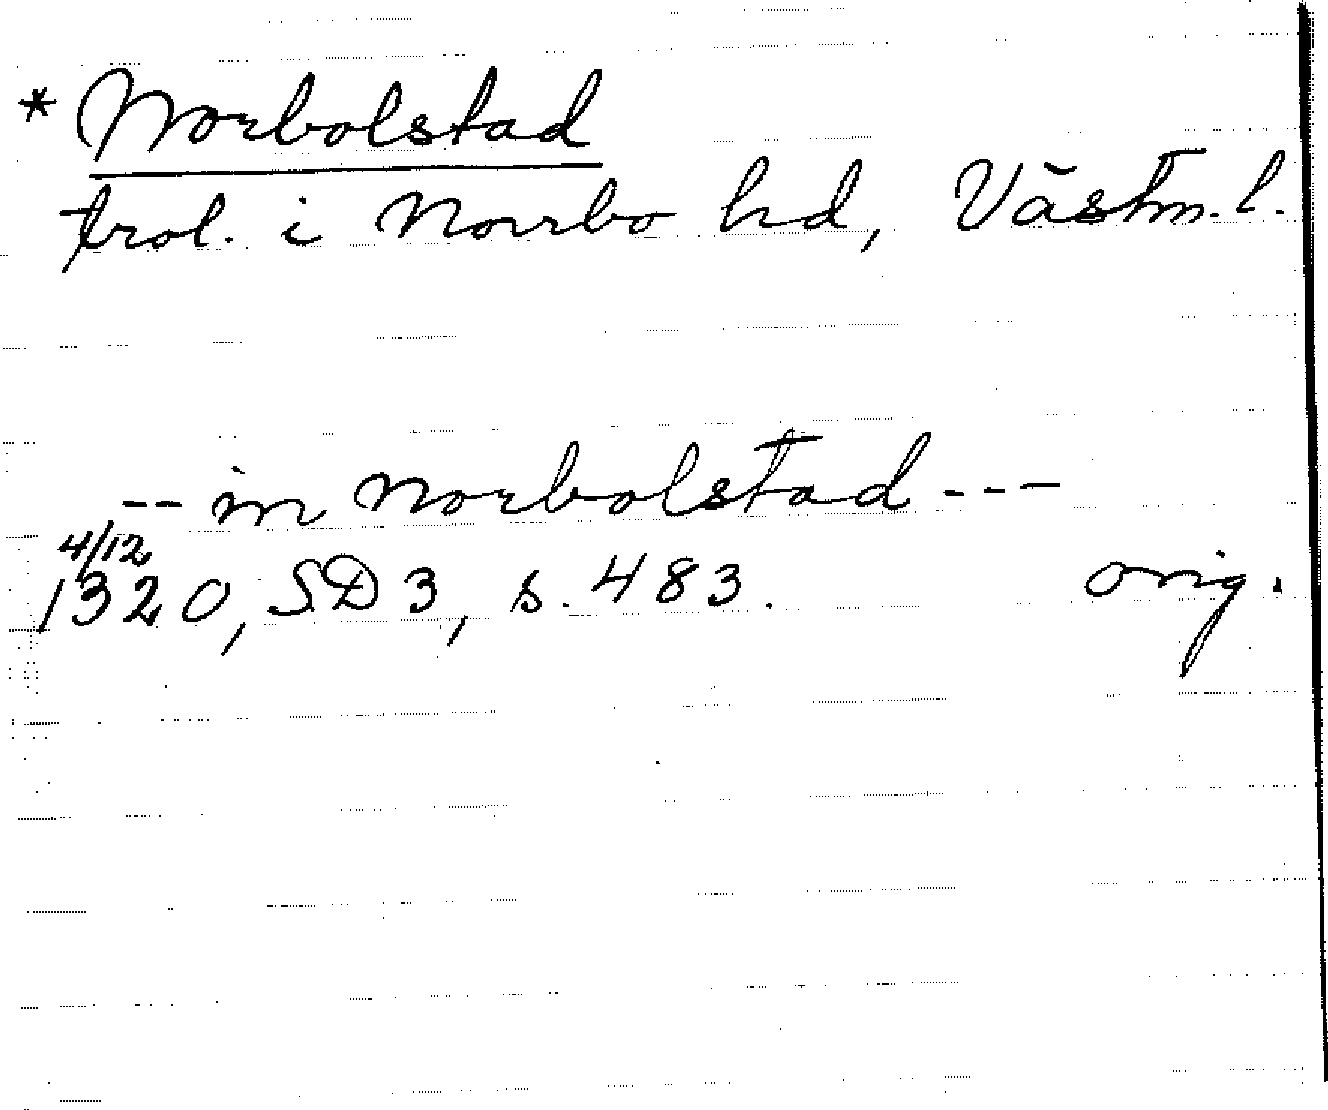 * Norbolstad
trol. i Norrbo hd, Västm. l.
-- in Norbolstad ---
4/12
1320, SD 3, s. 483. orig.